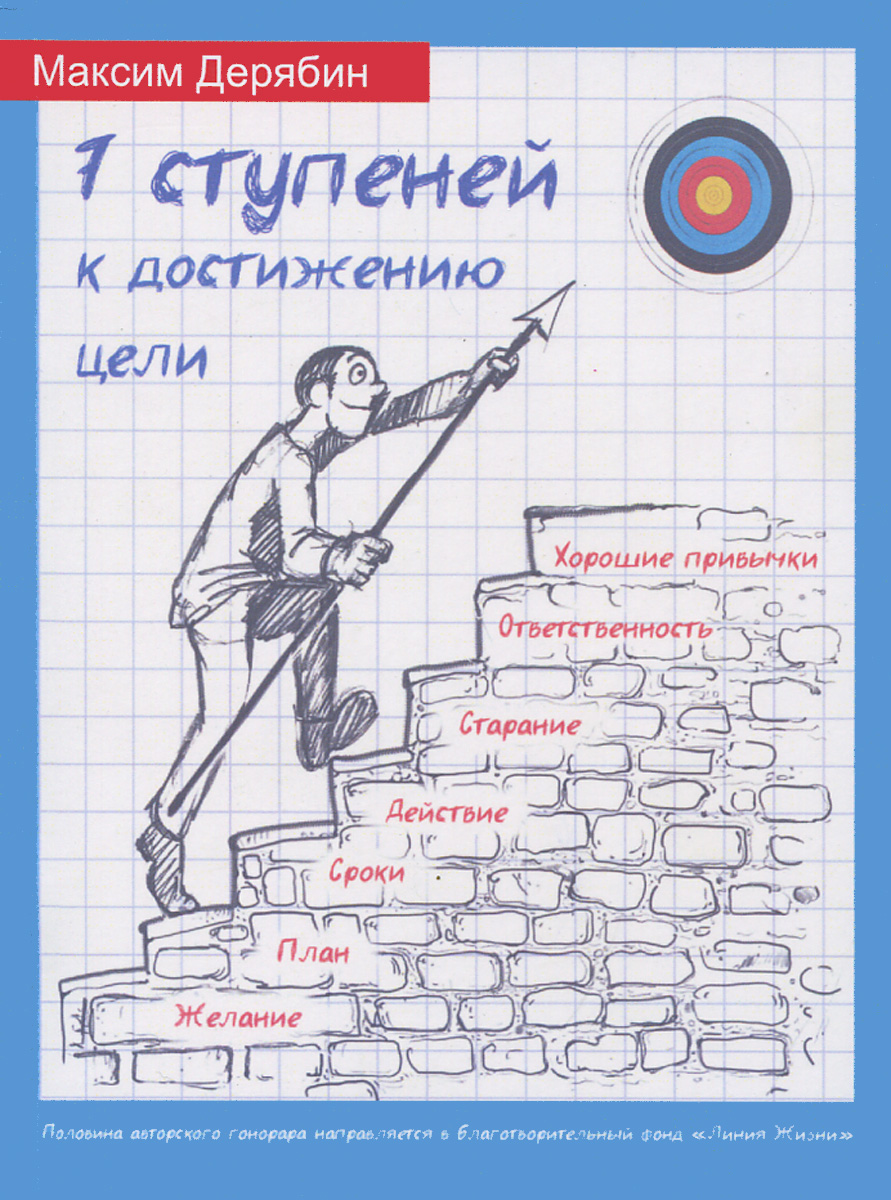 Максим Дерябин
7 ступеней
к достижению
цели
Хорошие привычки
Ответственность
Старание
Действие
Сроки
План
Желание
Половина авторского гонорара направляется в благотворительный фонд «Линия Жизни»